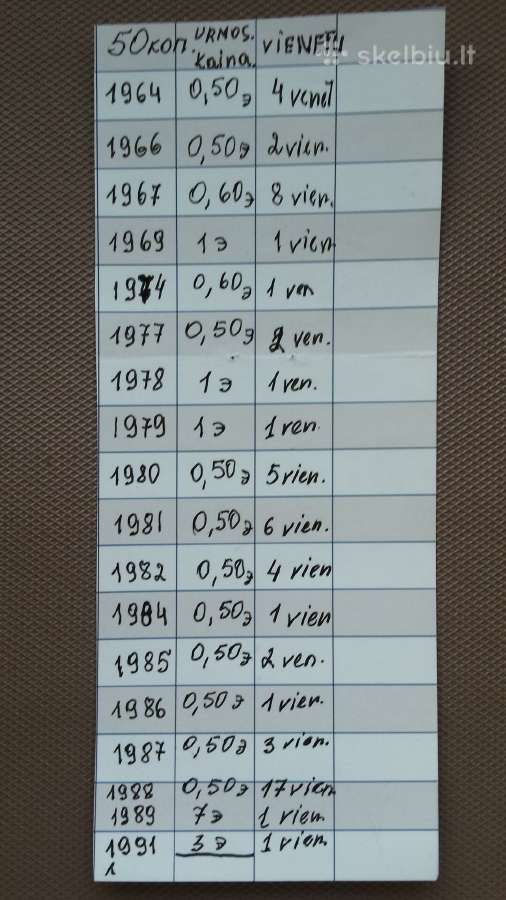 50коп. URNOS. Kaina. VIENETU
skelbiu.lt
1964 0,50э 4 venet
1966 0,50э 2 vien.
1967 0,60э 8 vien.
1969 1э 1 vien
1974 0,60э 1 ven
1977 0,50э 2 ven.
1978 1э 1 ven.
1979 1э 1 ven.
1980 0,50э 5 vien.
1981 0,50э 6 vien.
1982 0,50э 4 vien
1984 0,50э 1 vien
1985 0,50э 2 ven.
1986 0,50э 1 vien.
1987 0,50э 3 vien.
1988 0,50э 17 vien
1989 7э 1 vien.
1991 3э 1 vien.